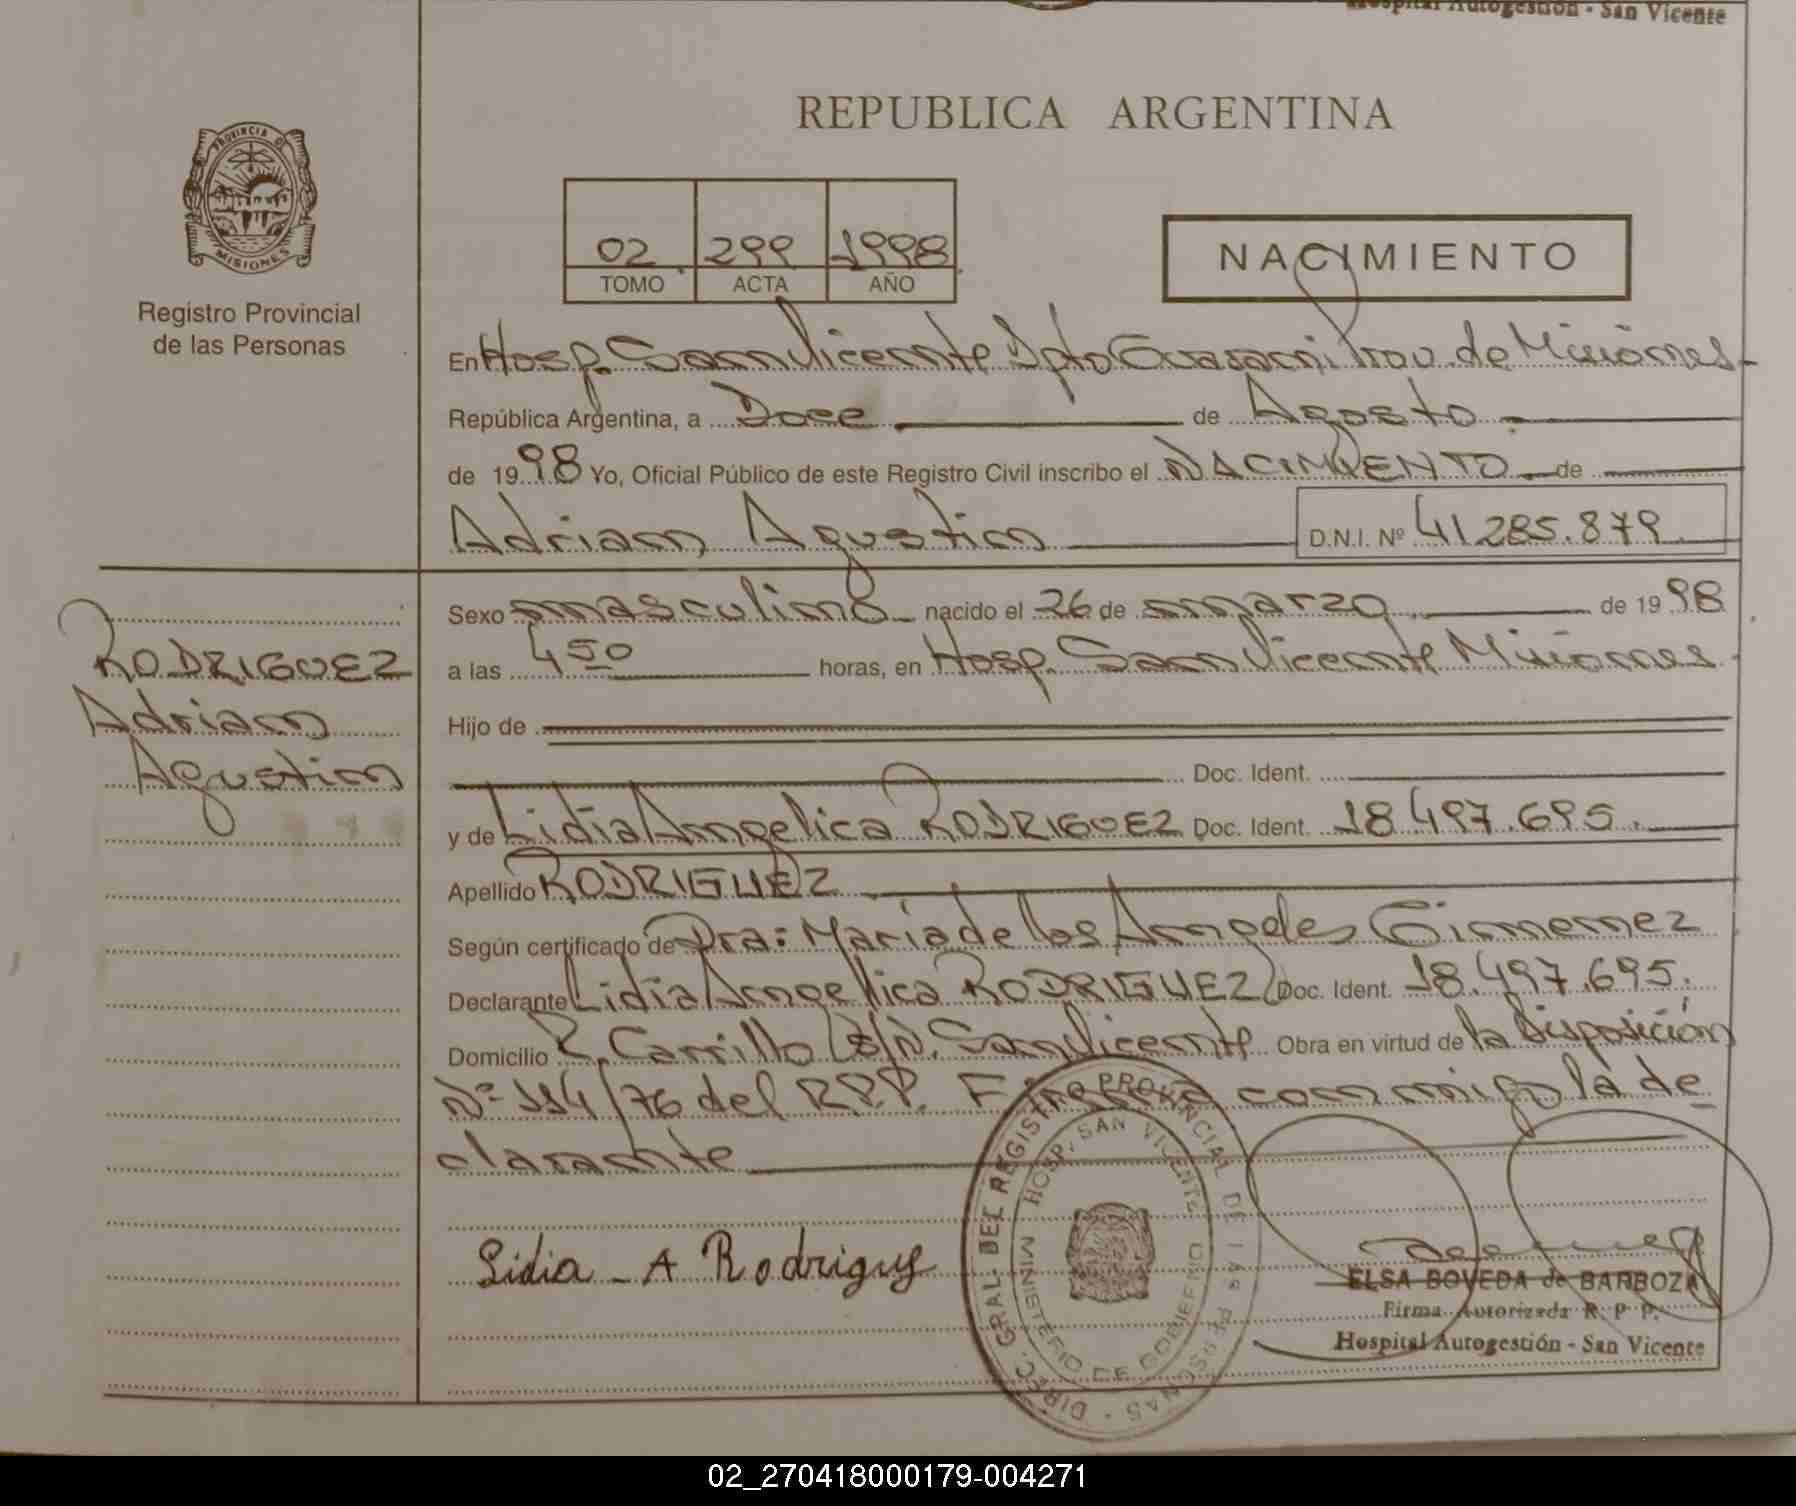 Hospital Autogestión - San Vicente
REPUBLICA ARGENTINA
PROVINCIA DE
MISIONES
Registro Provincial
de las Personas
02 299 1998
TOMO ACTA AÑO
NACIMIENTO
En Hosp. San Vicente Dpto Guarani Prov. de Misiones-
República Argentina, a Doce de Agosto
de 1998 Yo, Oficial Público de este Registro Civil inscribo el NACIMIENTO de
Adrian Agustin D.N.I. Nº 41285.879
Sexo masculino nacido el 26 de marzo de 1998
a las 450 horas, en Hosp. San Vicente Misiones.
Hijo de
Doc. Ident.
y de Lidia Angelica RODRIGUEZ Doc. Ident. 18497.695.
Apellido RODRIGUEZ
Según certificado de Dra: Maria de los Angeles Gimenez
Declarante Lidia Angelica RODRIGUEZ Doc. Ident. 18.497.695.
Domicilio R. Carrillo S/N. San Vicente Obra en virtud de la Disposición
Nº 114/76 del R.P.P. conmigo la de
clarante
RODRIGUEZ
Adrian
Agustin
Lidia - A Rodriguez
DIREC. GRAL. DEL REGISTRO PROVINCIAL DE LAS PERSONAS
HOSP. SAN VICENTE
MINISTERIO DE GOBIERNO
ELSA BOVEDA de BARBOZA
Firma Autorizada R. P. P.
Hospital Autogestión - San Vicente
02_270418000179-004271